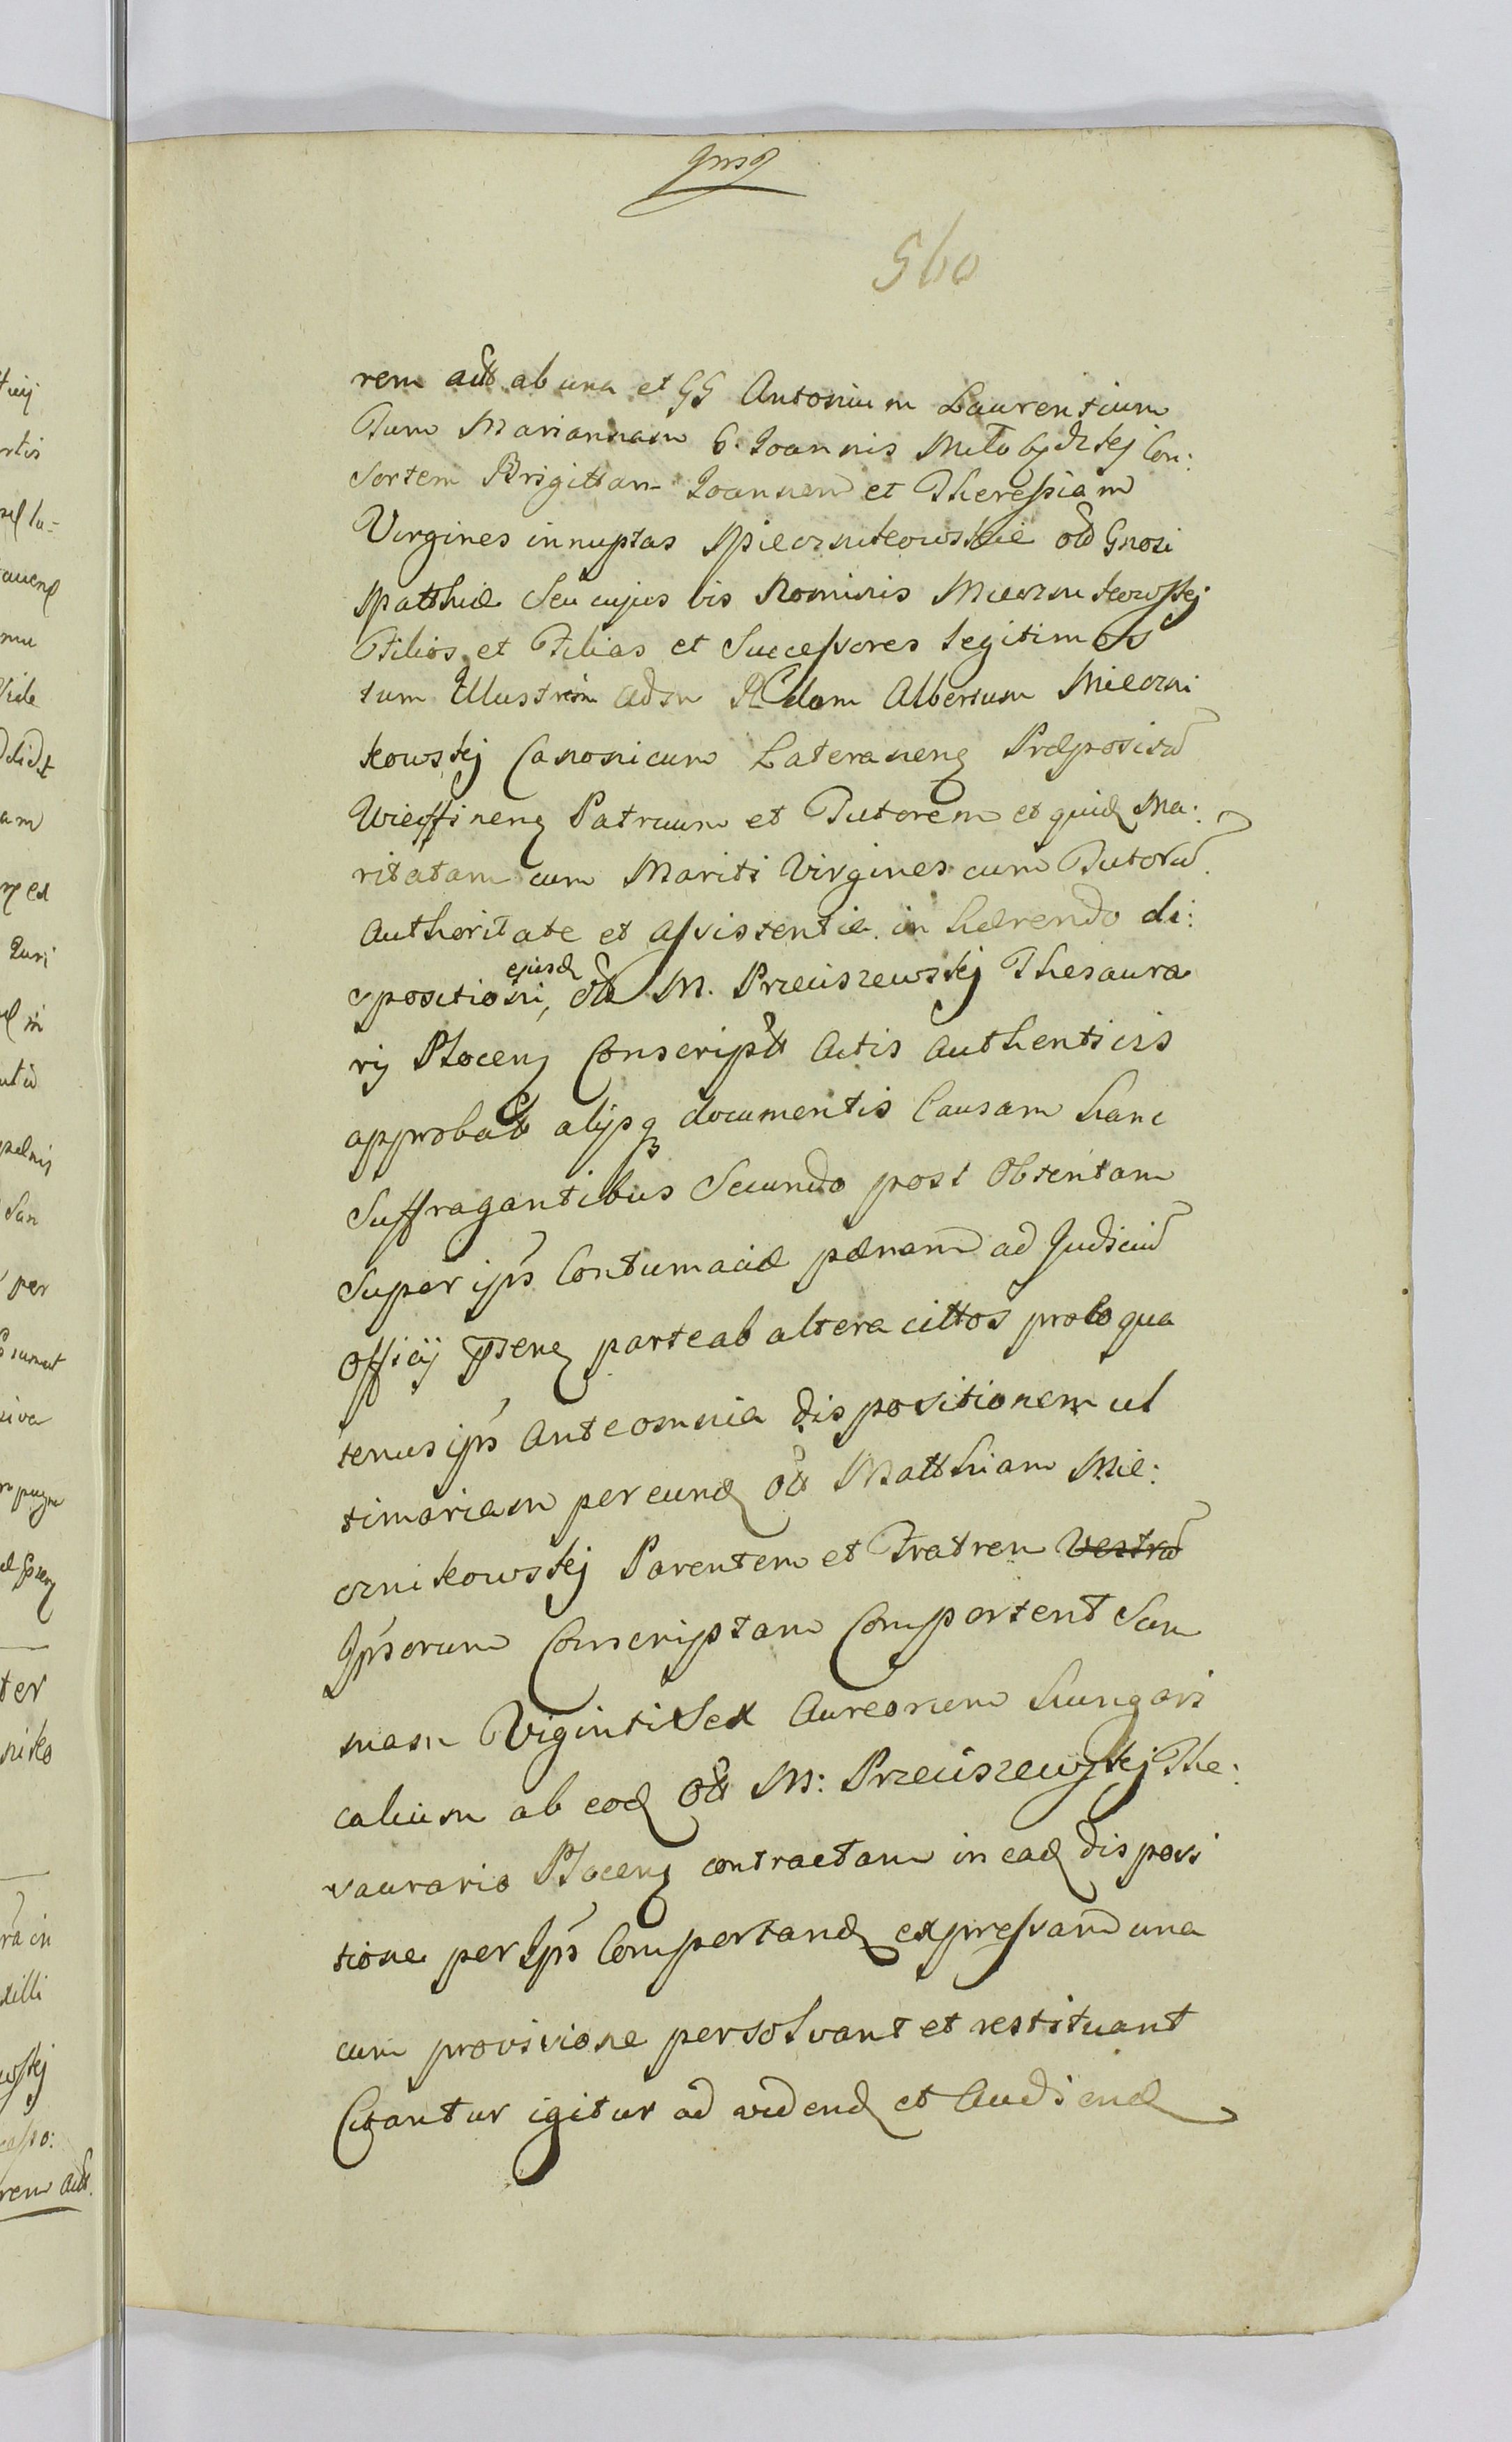 560
rem actt ab una et GG Antonium Laurentium
Tum Mariannam G. Joannis Miłobędzkij Con:
Sortem Brigittam Joannem et Theressiam
Virgines innuptas Miecznikowskie olD Gnosi
Matthiæ Seu cujus vis Nominis Mieczni kowskij
Filios et Filias et Successores legitimos
tum Illustrem adm Rdum Albertum Mieczni
kowskij Canonicum Lateranens Præpositū
Patruum et Tutorem et quid Ma:
ritatam cum Mariti Virgines cum Tutorū
Authoritate et assistentia in hærendo di:
spositioni, ejusd olt M. Przeciszewskij Thesaura
rij Plocens Conscriptt Actis Authenticis
approbatt alijsq documentis Causam hanc
Suffragantibus Secundo post Obtentam
Super ips Contumaciæ pænam ad Judiciū
Officij psens parte ab altera cittos proloqua
tenus ips Ante omnia dispositionem ul
timariam per eund olt Matthiam Mie:
cznikowskij Parentem et Fratrem Vestrū
Ipsorum Conscriptam Comportent Sum
mam Viginti Sex Aureorum hungari
calium ab eod olt M: Przeciszewskij The:
saurario Plocens contractam in ead disposi
tione per Ips Comportand expressam una
cum provisione persolvant et restituant
Citantur igitur ad vidend et Audiend